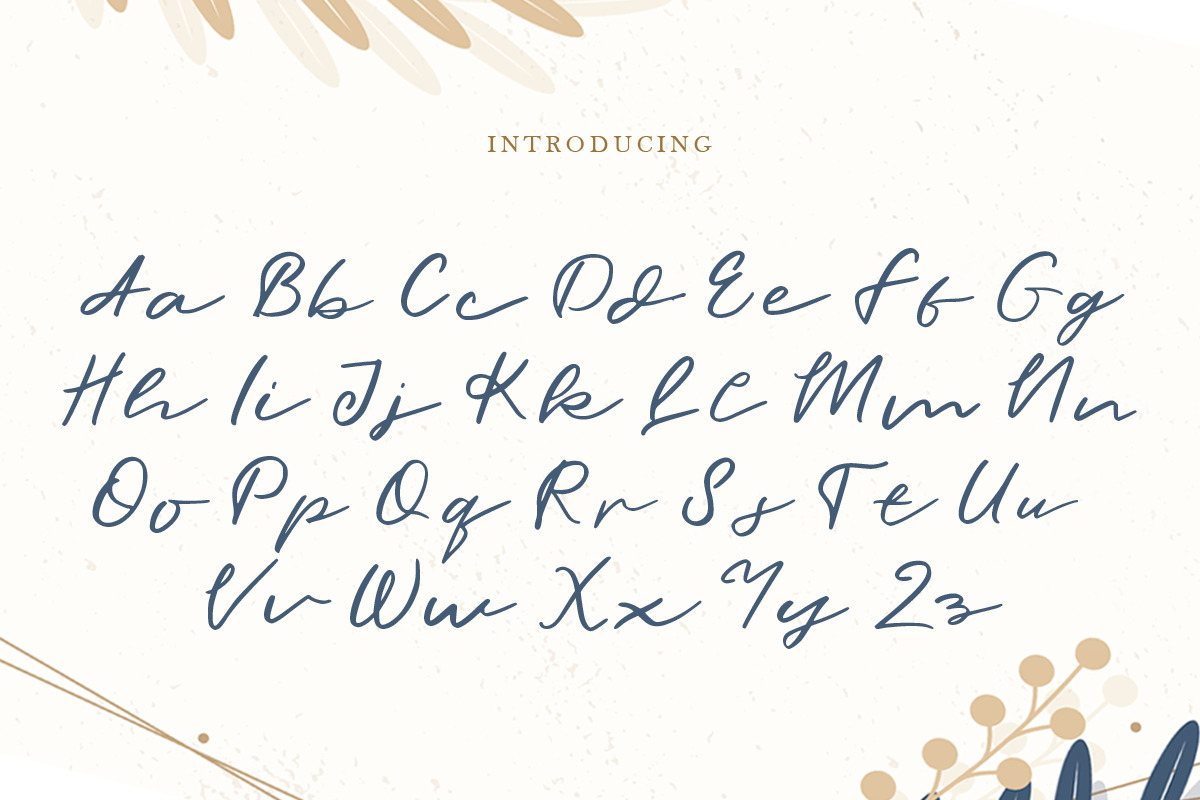 INTRODUCING
Aa Bb Cc Dd Ee Ff Gg
Hh Ii Jj Kk Ll Mm Nn
Oo Pp Qq Rr Ss Tt Uu
Vv Ww Xx Yy Zz